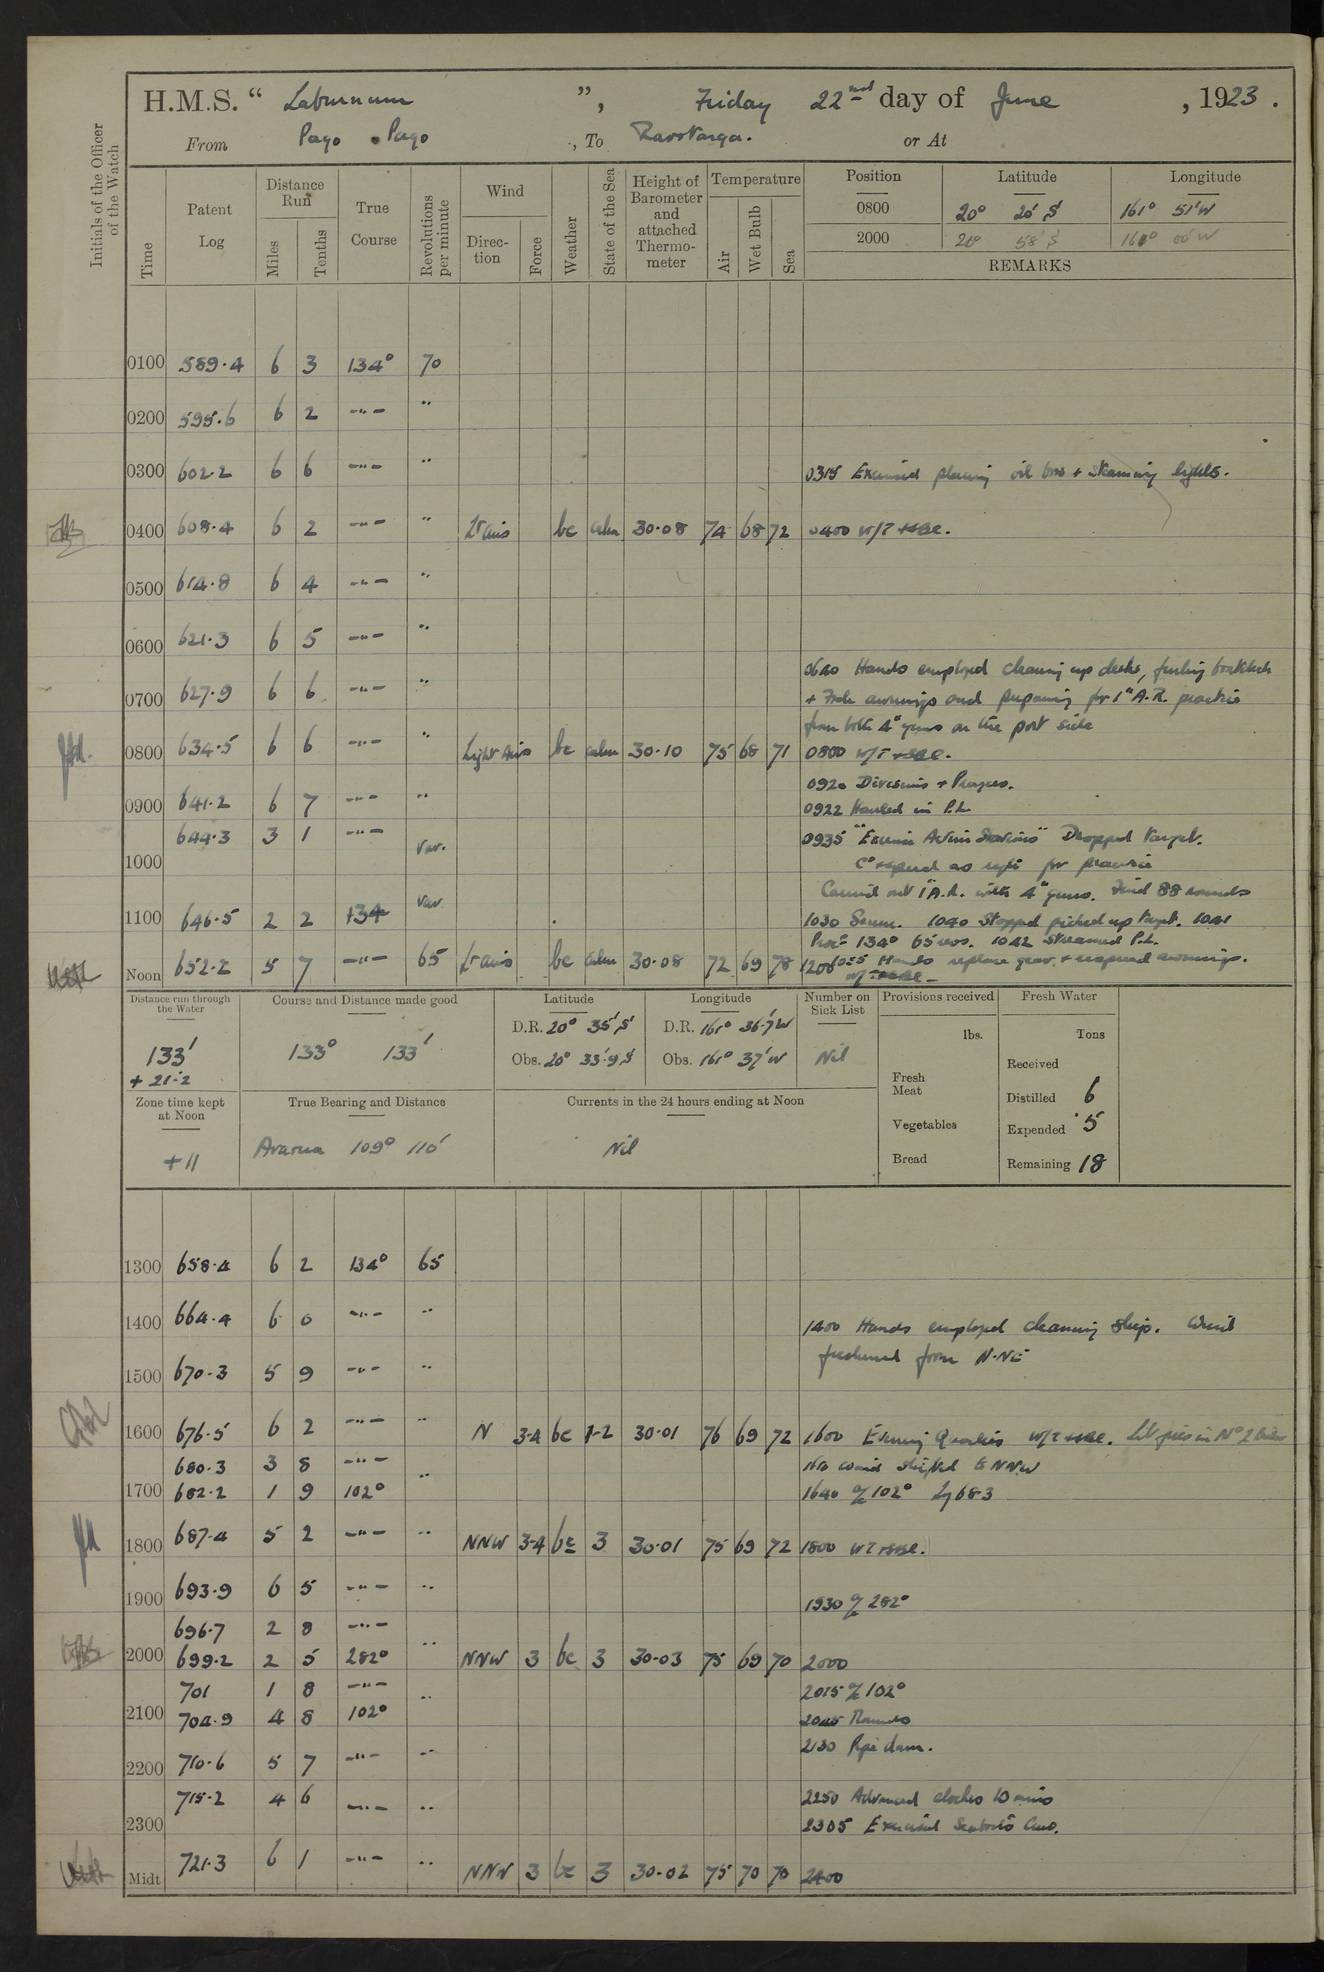 H.M.S. “ Laburnum ”, Friday 22nd day of June , 1923 .
From Pago Pago , To Rarotonga. or At
Initials of the Officer of the Watch
Time
Patent Log
Distance Run
Miles
Tenths
True Course
Revolutions per minute
Wind
Direc-tion
Force
Weather
State of the Sea
Height of Barometer and attached Thermo-meter
Temperature
Air
Wet Bulb
Sea
Position Latitude Longitude
0800 20° 20' S 161° 51' W
2000 20° 58' S 161° 00' W
REMARKS
0100 589.4 6 3 134° 70
0200 595.6 6 2 -"- "
0300 602.2 6 6 -"- " 0315 Exercised placing oil + steaming lights.
0400 608.4 6 2 -"- " Lt airs bc calm 30.08 74 68 72 0400 W/T
0500 614.8 6 4 -"- "
0600 621.3 6 5 -"- "
0640 Hands employed cleaning up decks, furling
0700 627.9 6 6 -"- " + awnings and preparing for 1" A.R. practice
from both 4" guns on the port side
0800 634.5 6 6 -"- " Light Airs bc calm 30.10 75 68 71 0800 W/T
0920 Divisions + Prayers.
0900 641.2 6 7 -"- " 0922 Hauled in P.L
644.3 3 1 -"- 0935 "Exercise Action Stations" Dropped target.
1000 Var. Co + speed as reqte for practice
Carried out 1" A.R. with 4" guns. Fired 88 rounds
1100 646.5 2 2 134 Var 1030 Secure. 1040 Stopped picked up target. 1041
Proc 134° 65 revs. 1042 Streamed P.L.
Noon 652.2 5 7 -"- 65 Lt airs bc calm 30.08 72 69 78 1055 Hands replace gear, + respread awnings.
1200 W/T
Distance run through the Water
133'
+ 21.2
Course and Distance made good
133° 133'
Latitude
D.R. 20° 35' S
Obs. 20° 33'.9 S
Longitude
D.R. 161° 36'.7 W
Obs. 161° 37' W
Number on Sick List
Nil
Provisions received
lbs.
Fresh Meat
Vegetables
Bread
Fresh Water
Tons
Received
Distilled 6
Expended 5
Remaining 18
Zone time kept at Noon
+11
True Bearing and Distance
Avarua 109° 110'
Currents in the 24 hours ending at Noon
Nil
1300 658.4 6 2 134° 65
1400 664.4 6 0 -"- " 1400 Hands employed cleaning ship. Wind
freshened from N-NE
1500 670.3 5 9 -"- "
1600 676.5 6 2 -"- " N 3-4 bc 1-2 30.01 76 69 72 1600 Evening Quarters W/T Lit fires in No 2 boiler
680.3 3 8 -"- " 1610 wind shifted to NNW
1700 682.2 1 9 102° 1640 a/c 102° Lg 683
1800 687.4 5 2 -"- " NNW 3-4 bc 3 30.01 75 69 72 1800 WT
1900 693.9 6 5 -"- " 1930 a/c 282°
696.7 2 8 -"-
2000 699.2 2 5 282° " NNW 3 bc 3 30.03 75 69 70 2000
701 1 8 -"- " 2015 a/c 102°
2100 704.9 4 8 102° 2045 Rounds
2130 Pipe down.
2200 710.6 5 7 -"- "
715.2 4 6 -"- " 2250 Advanced clocks 10 mins
2300 2305 Exercised Seaboat's Crew.
Midt 721.3 6 1 -"- " NNW 3 bc 3 30.02 75 70 70 2400